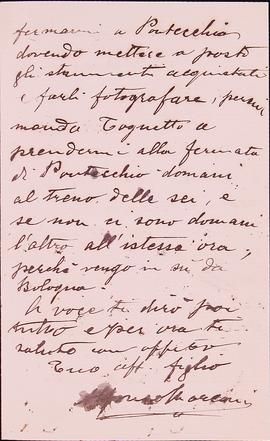 fermarmi a Pontecchio
dovendo mettere a posto
gli strumenti acquistati
e farli fotografare, perciò
manda Tognetto a
prendermi alla fermata
di Pontecchio domani
al treno delle sei, e
se non ci sono domani
l'altro all'istessa ora,
perchè vengo in su da
Bologna.
A voce ti dirò poi
tutto e per ora ti
saluto con affetto
Tuo aff figlio
Marconi